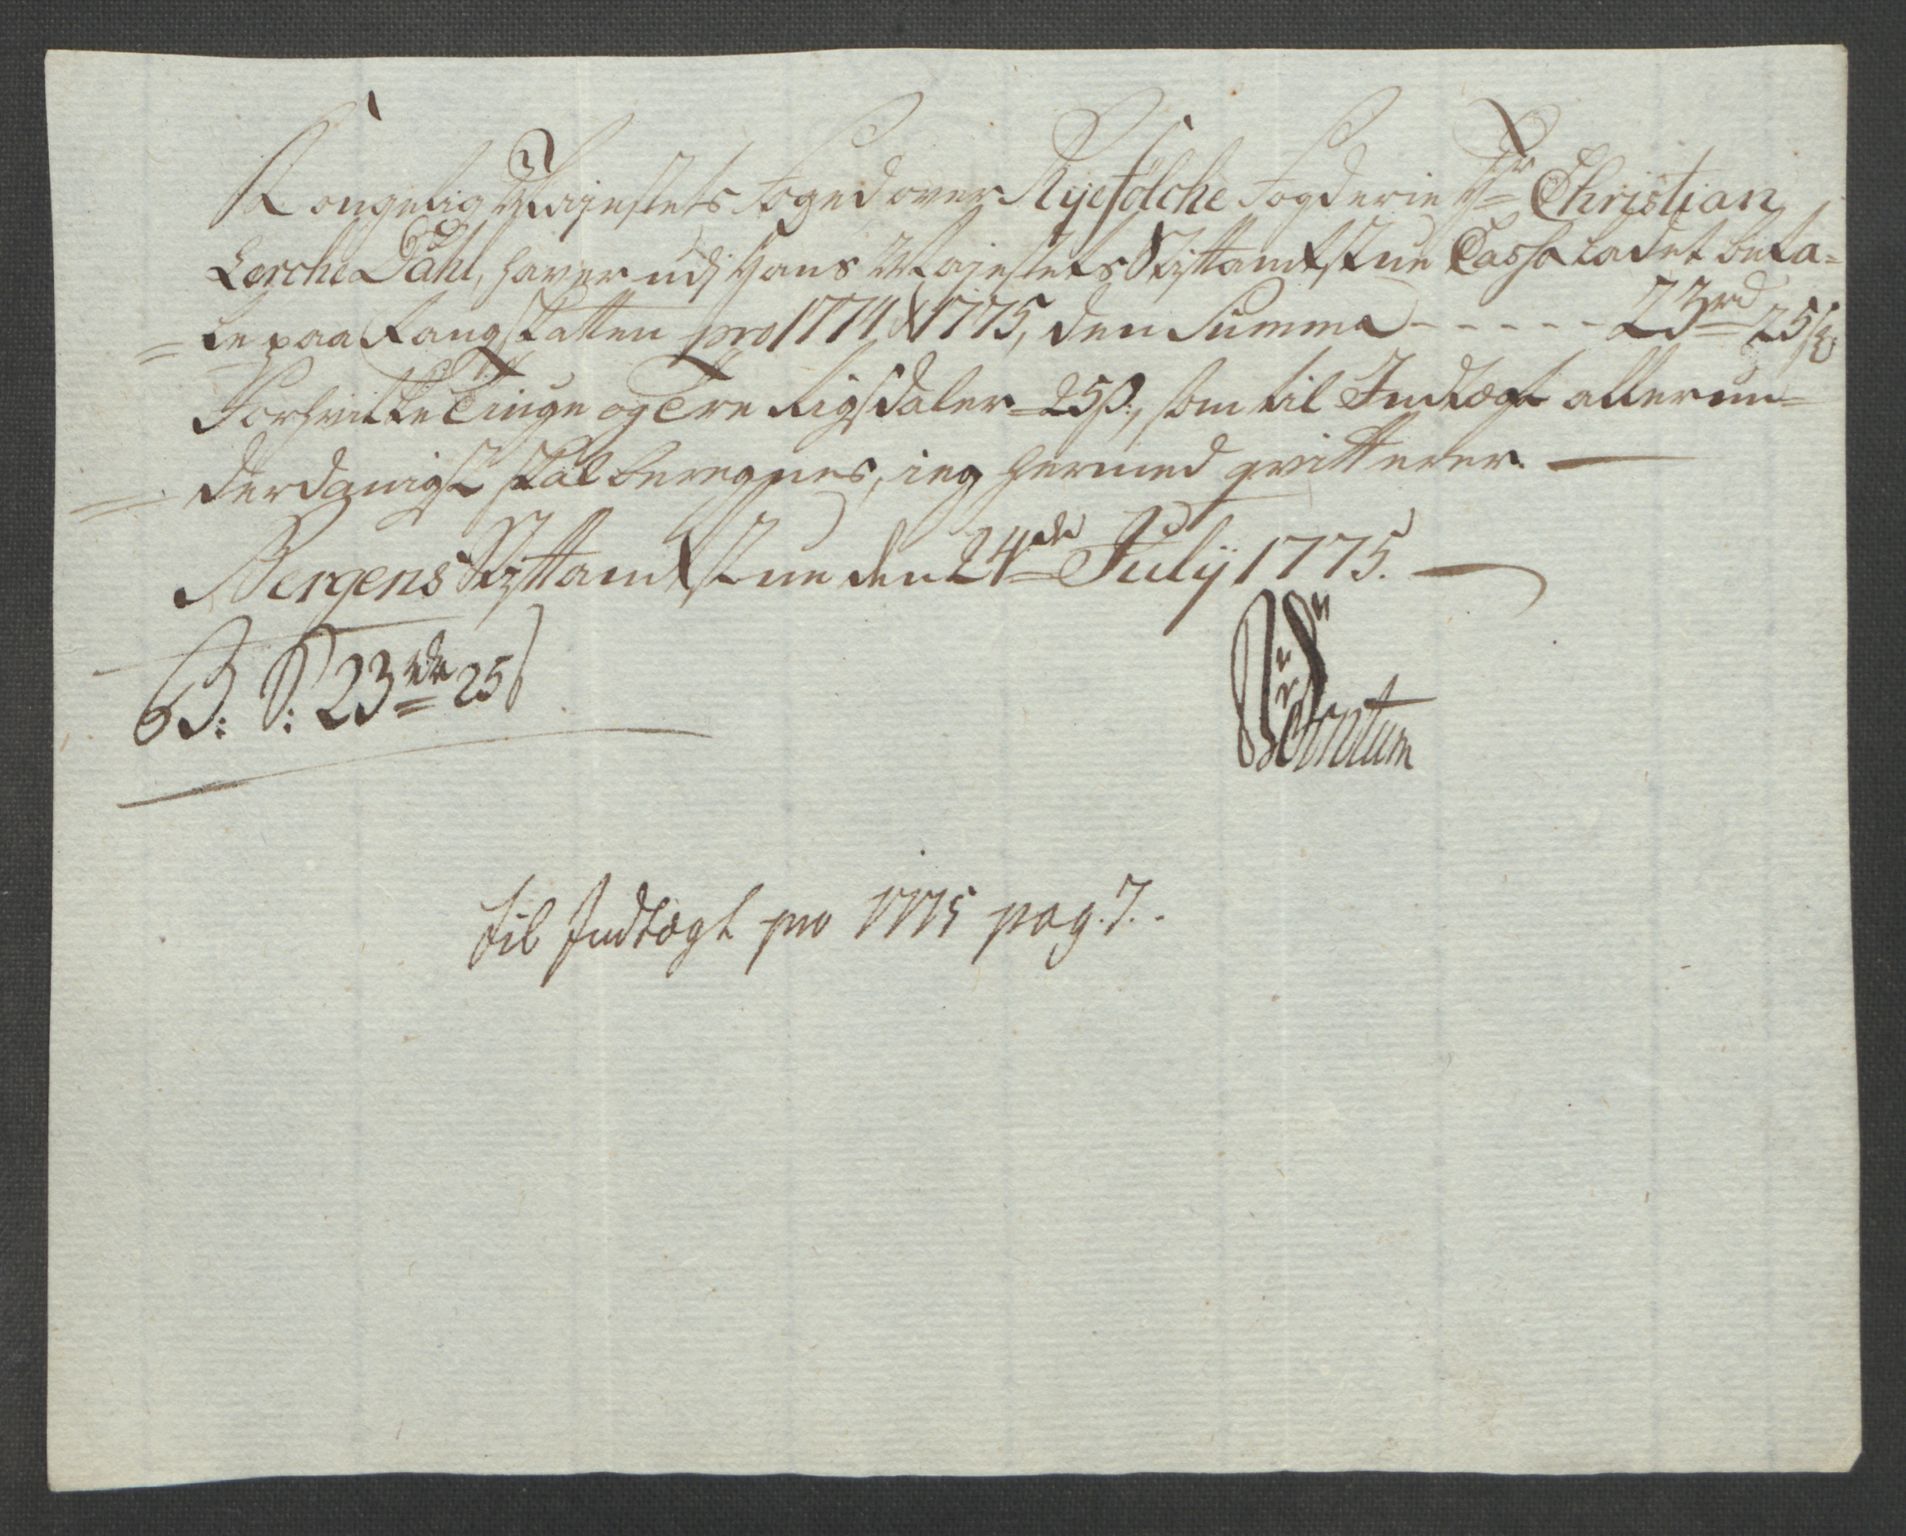 Kongelig Majestets Foged over Ryefölche Fogderie Hr Christian
Lerche Dahl, haver udj Hans Majestets Stiftamtstue Cassa ladet beta-
le paa Rangskatten pro 1774 & 1775, den Summa - - - - - 23rd 25ß
Forhvilke Tiuge og Tre Rigsdaler 25ß:, som til Indtægt allerun-
derdanigst skal beregnes, ieg hermed qvitterer.
Bergens Stiftamtstue den 24de Julij 1775.
B: S: 23rdr 25ß
til Indtægt pro 1775 pag. 7.